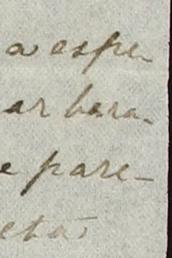 a espe-
ar bara-
e pare-
eta